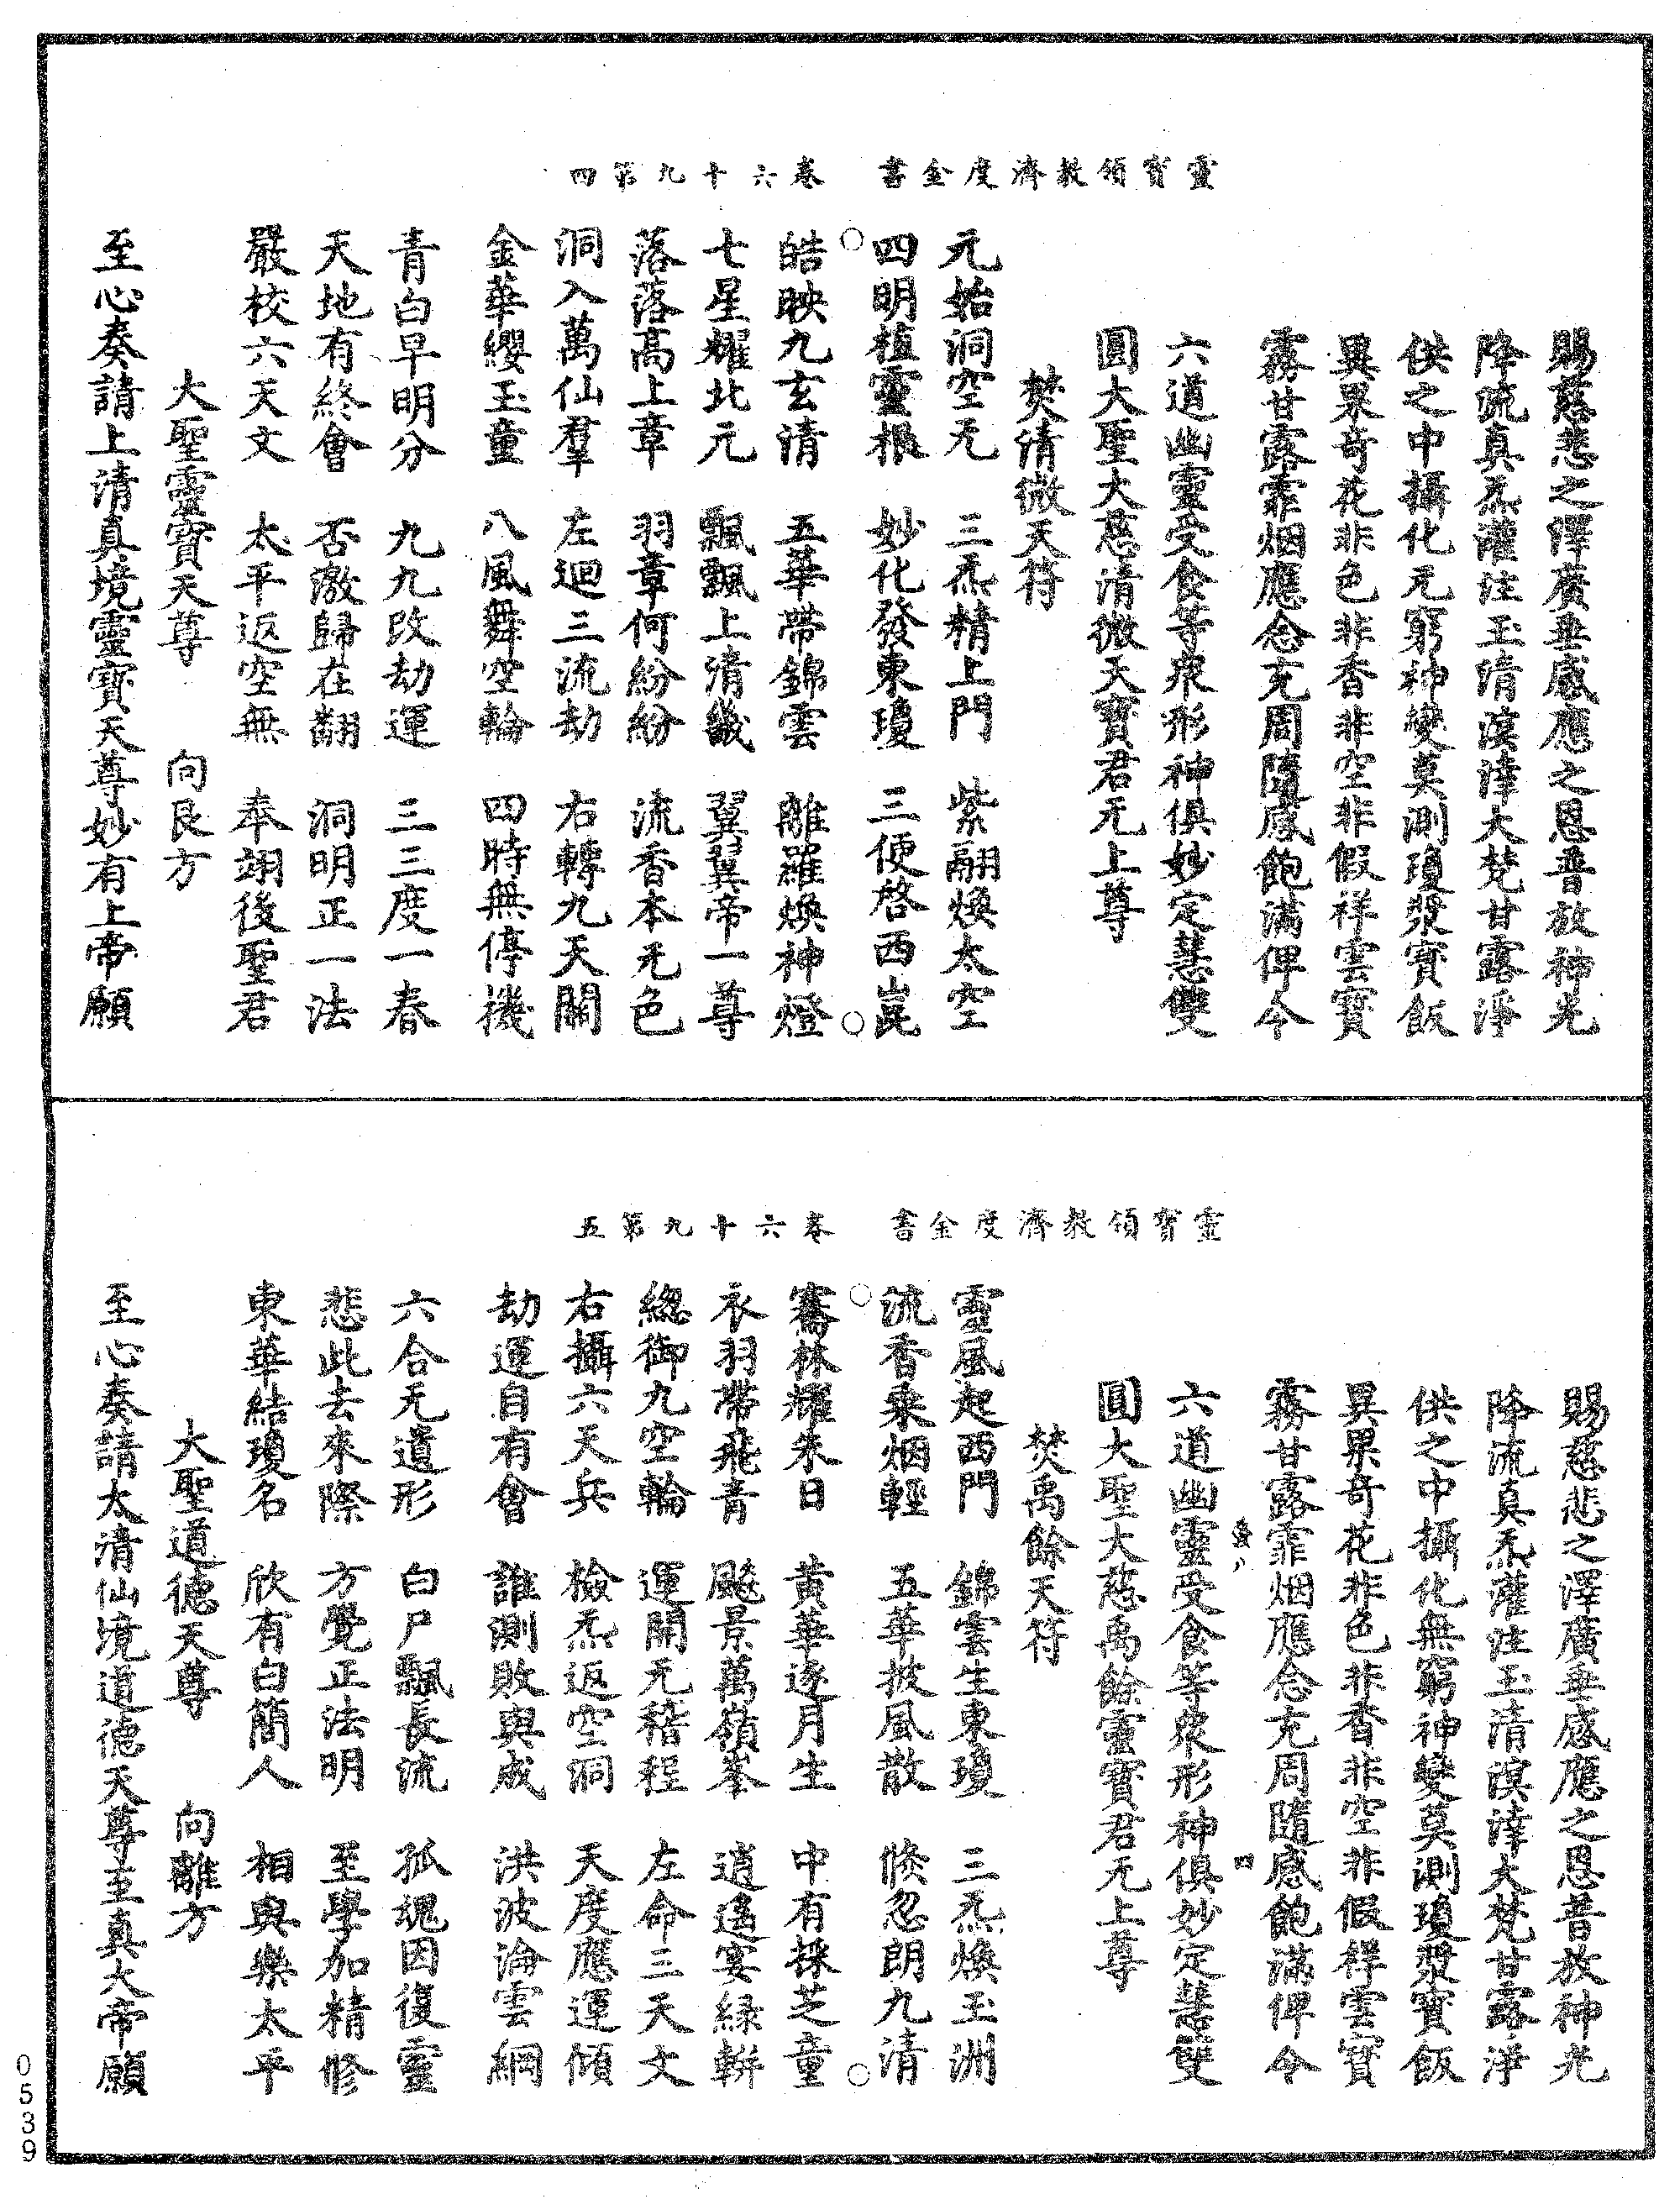 靈寳領教濟度金書　卷六十九第四
賜慈悲之澤廣垂感應之恩普放神光
降流真炁灌注玉清溟涬大梵甘露淨
供之中攝化无窮神變莫測瓊漿寳飯
異果奇花非色非香非空非假祥雲寳
霧甘露霏烟應念充周隨感飽滿俾今
六道幽靈受食等衆形神俱妙定慧雙
圓大聖大慈清微天寳君无上尊
焚清微天符
元始洞空无　三炁精上門　紫翮煥太空
四明植靈根　妙化發東瓊　三便啓西崑
皓映九玄清　五華帶錦雲　離羅煥神燈
七星耀北元　飄飄上清畿　翼翼帝一尊
落落高上章　羽章何紛紛　流香本无色
洞入萬仙羣　左迴三流劫　右轉九天關
金華纓玉童　八風舞空輪　四時無停機
青白早明分　九九改劫運　三三度一春
天地有終會　否激歸在翻　洞明正一法
嚴校六天文　太平返空無　奉翊後聖君
大聖靈寳天尊　向艮方
至心奏請上清真境靈寳天尊妙有上帝願
靈寳領教濟度金書　卷六十九第五
賜慈悲之澤廣垂感應之恩普放神光
降流真炁灌注玉清溟涬大梵甘露淨
供之中攝化無窮神變莫測瓊漿寳飯
異果奇花非色非香非空非假祥雲寳
霧甘露霏烟應念充周隨感飽滿俾今
六道幽靈受食等衆形神俱妙定慧雙
圓大聖大慈禹餘靈寳君无上尊
焚禹餘天符
靈風起西門　錦雲生東瓊　三炁煥玉洲
流香乘烟輕　五華披風散　倐忽朗九清
騫林耀朱日　黃華逐月生　中有採芝童
衣羽帶飛青　飈景萬嶺峯　逍遙宴緑軿
總御九空輪　運開无稽程　左命三天文
右攝六天兵　檢炁返空洞　天度應運傾
劫運自有會　誰測敗與成　洪波淪雲綱
六合无遺形　白尸飄長流　孤魂因復靈
悲此去來際　方覺正法明　至學加精修
東華結瓊名　欣有白簡人　相與樂太平
大聖道德天尊　向離方
至心奏請太清仙境道德天尊至真大帝願
0539